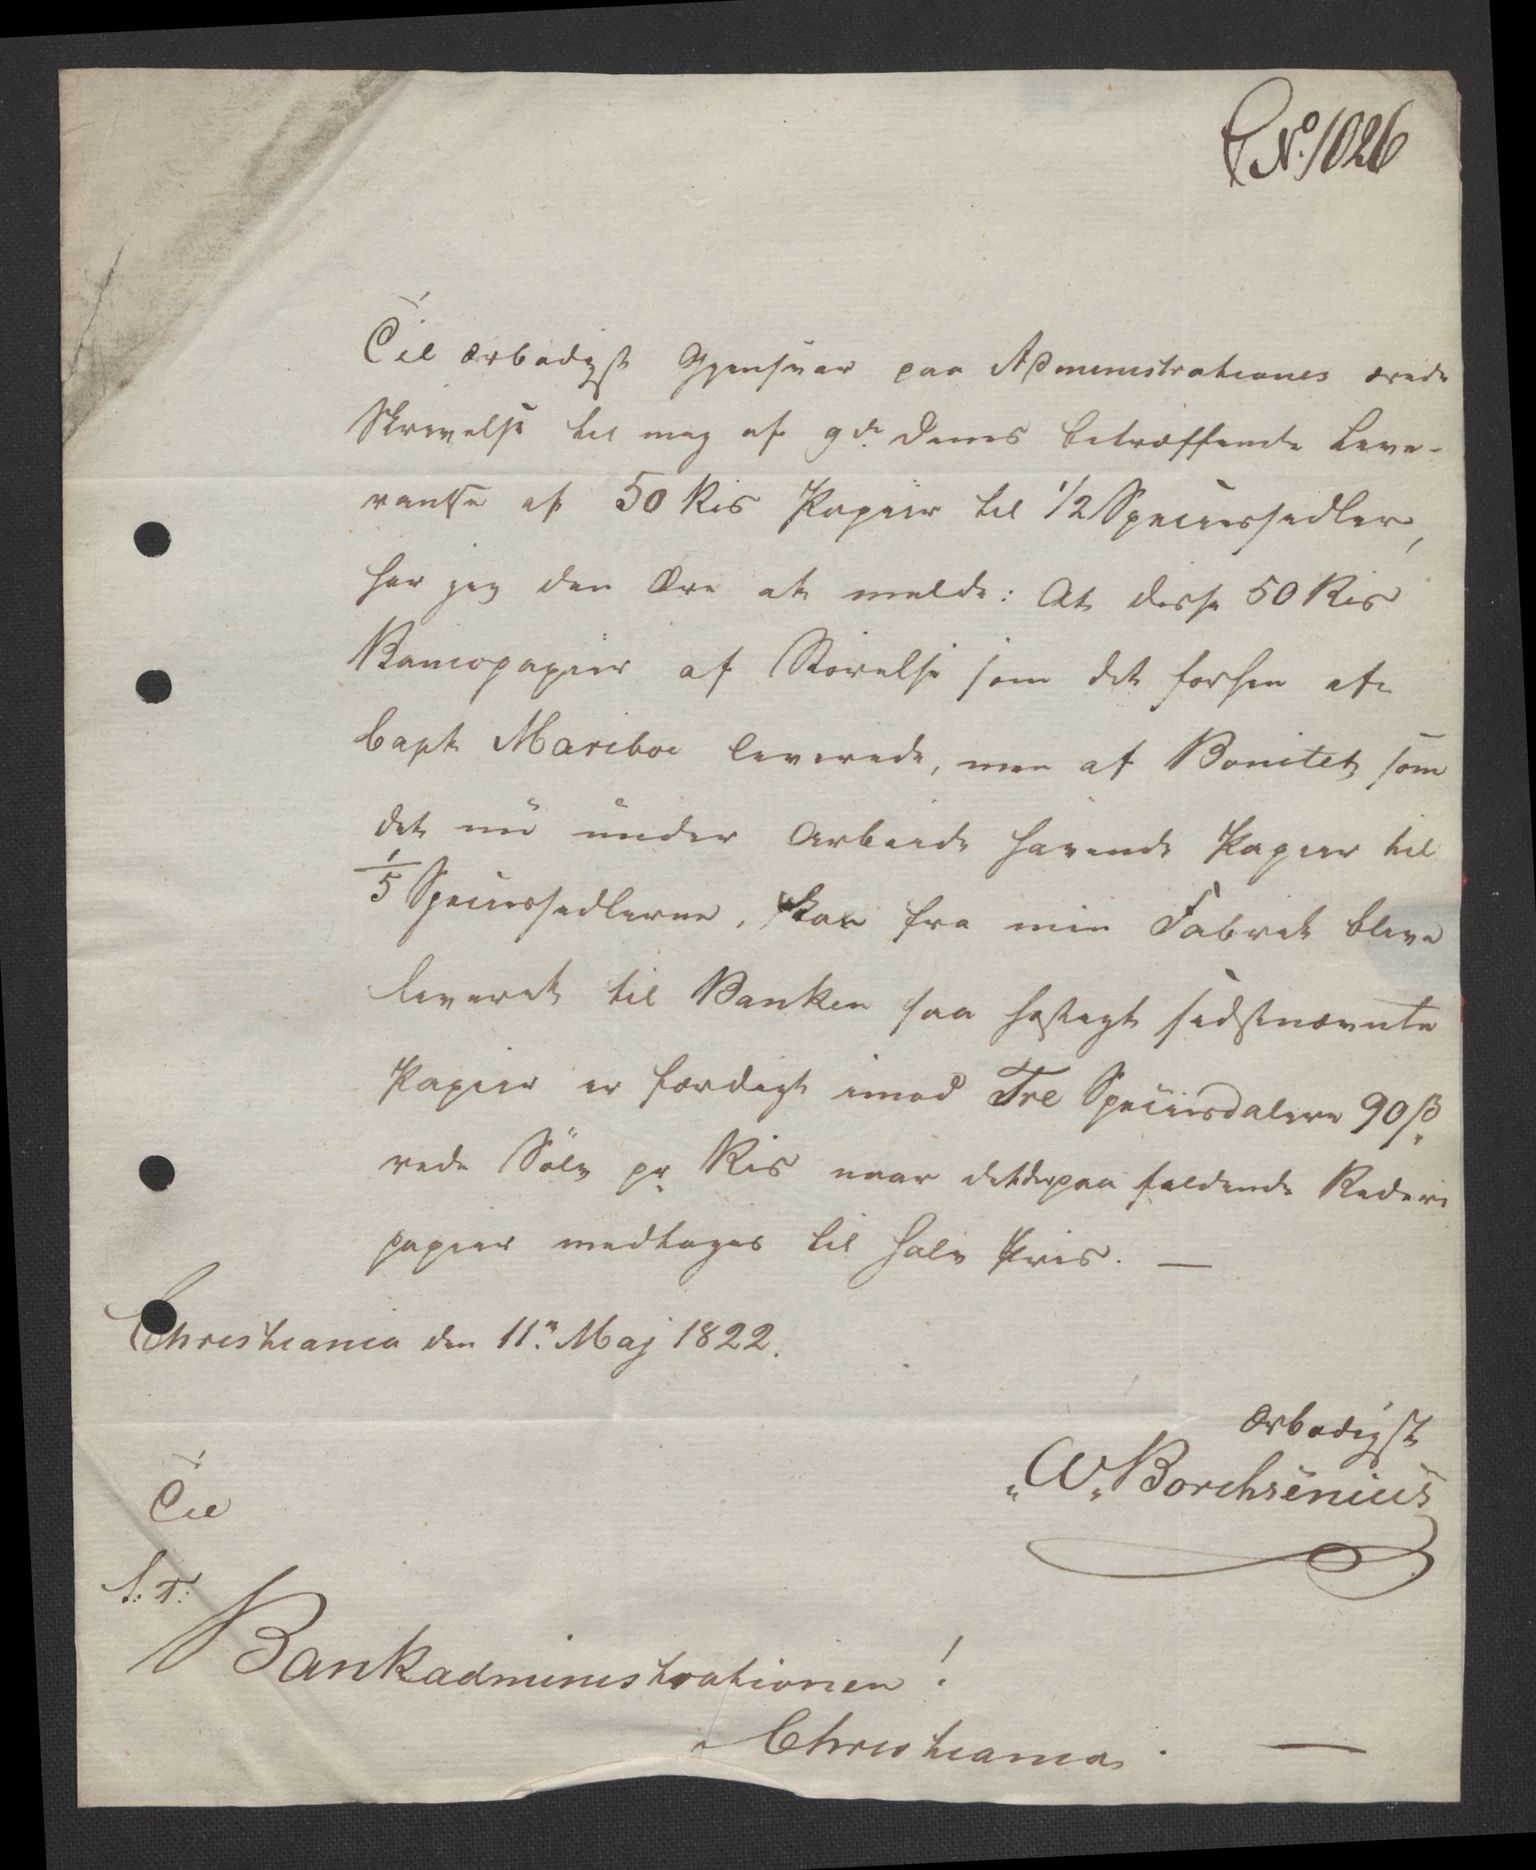 No. 1026
Til ærbødigst Gjensvar paa Administrationens ærede
Skrivelse til mig af 9de. dennes betræffende Leve-
rantse af 50 Ris Papiir til 1/2 Speciessedler,
har jeg den Ære at melde: At disse 50 Ris
Bancopapiir af Störelse som det forhen af
Capt Mariboe leverede, men af Bonitet som
det nu under Arbeide havende Papiir til
1/5 Speciessedlerne, kan fra min Fabrik blive
leveret til Banken saa hastigt sidstnævnte
Papiir er færdigt imod Tre Speciesdalere 90 ß
rede Sölv pr Ris naar det derpaa faldende
papiir medtages til halv Priis. —
Christiania den 11n. Maj 1822.
Ærbødigst
W. Borchsenius
Til
S: T:
Bankadministrationen!
i Christiania. —